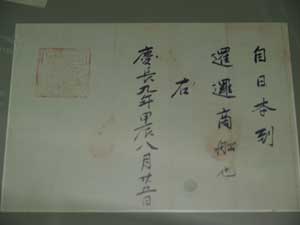 自日本到
暹邏商舩也
右
慶長九年甲辰八月廿五日